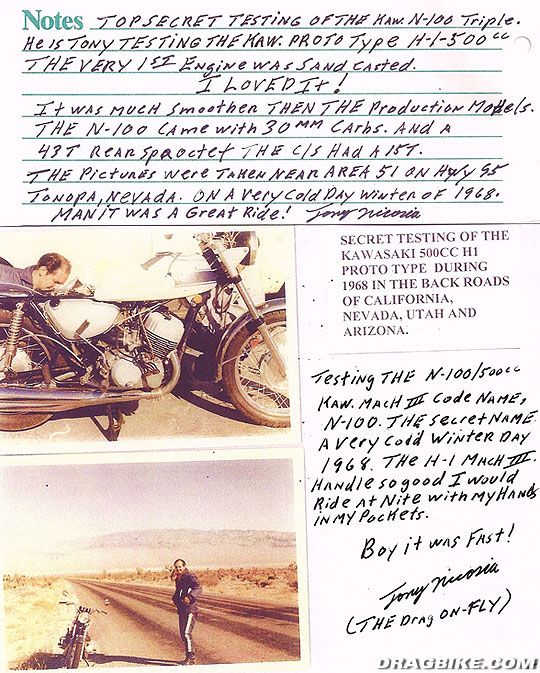 Notes TOP SECRET TESTING OF THE Kaw. N-100 Triple.
He is TONY TESTING THE KAW. PROTO Type H-1-500cc
THE VERY 1ST Engine was SAND Casted.
I LOVED It!
It was MUCH Smoother THEN THE Production Models.
THE N-100 Came with 30MM Carbs. AND A
43T Rear Sproctet THE C/S HAD A 15T.
THE Pictures were TAKEN NEAR AREA 51 ON Hwy 95
TONOPA, NEVADA. ON A Very Cold DAY Winter of 1968.
MAN IT WAS A Great Ride! Tony Nicosia
SECRET TESTING OF THE
KAWASAKI 500CC H1
PROTO TYPE DURING
1968 IN THE BACK ROADS
OF CALIFORNIA,
NEVADA, UTAH AND
ARIZONA.
Testing THE N-100/500cc
KAW. MACH III Code NAME,
N-100. THE Secret NAME
A Very Cold Winter DAY
1968. THE H-1 MACH III.
Handle so good I would
Ride at Nite with My Hands
in My Pockets.
Boy it was FAST!
Tony Nicosia
(THE Drag ON-FLY)
DRAGBIKE.COM